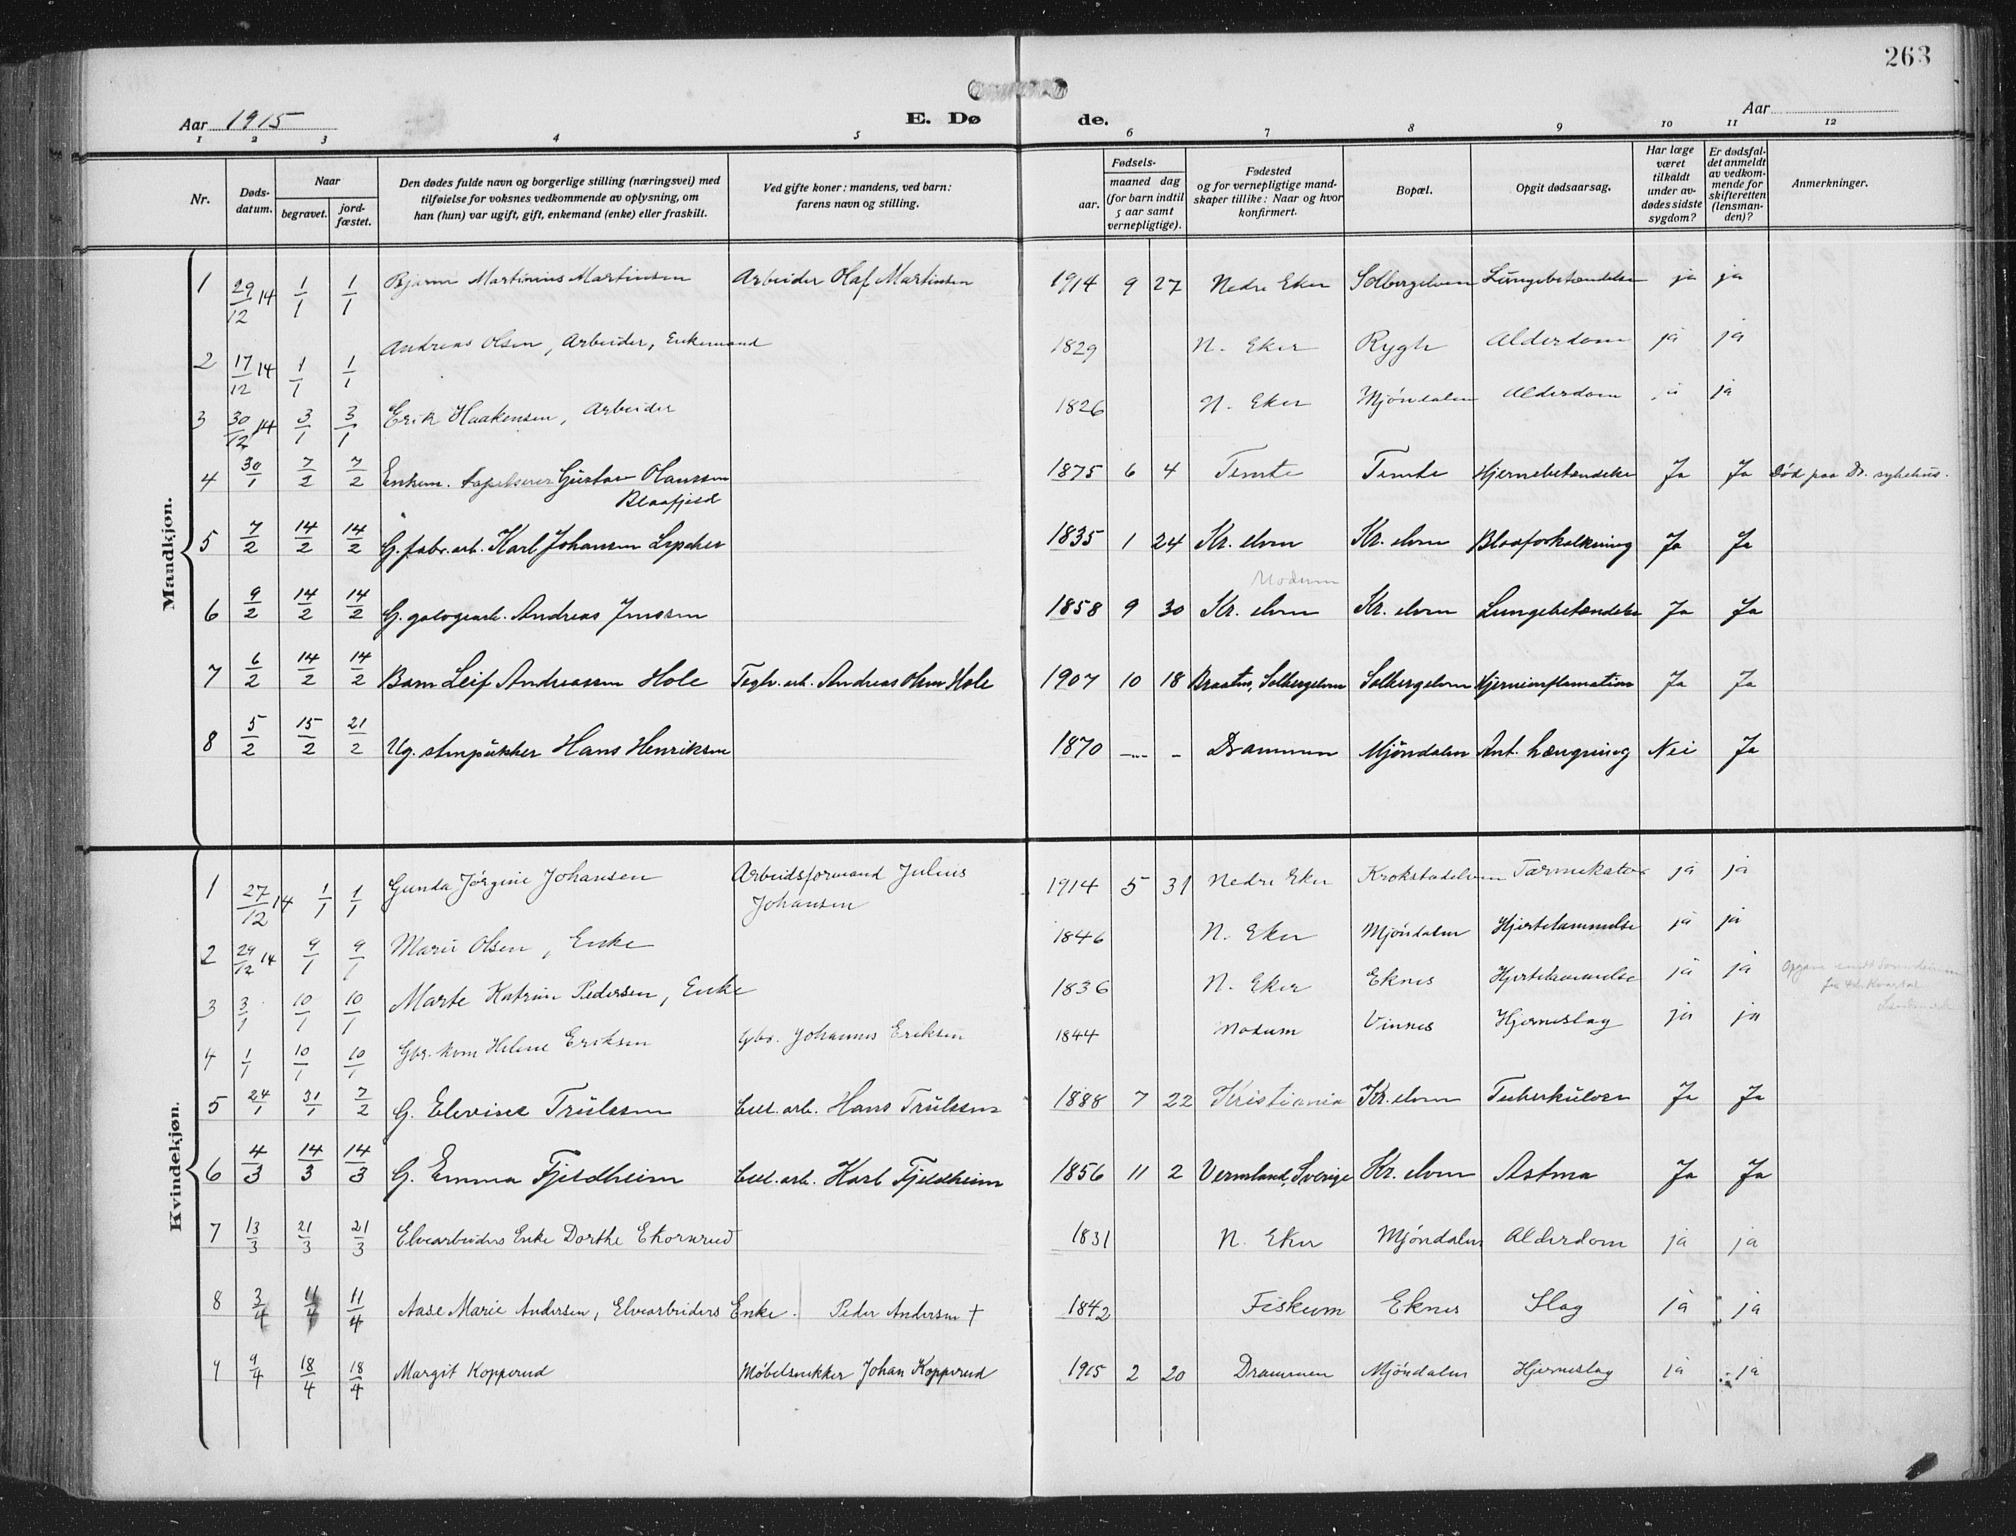 263
Aar 1915 E. Dø de. Aar
1 2 3 4 5 6 7 8 9 10 11 12
Nr. Døds-datum. Naar begravet. jord-fæstet. Den dødes fulde navn og borgerlige stilling (næringsvei) med tilføielse for voksnes vedkommende av oplysning, om han (hun) var ugift, gift, enkemand (enke) eller fraskilt. Ved gifte koner: mandens, ved barn: farens navn og stilling. Fødsels- aar. maaned dag (for barn indtil 5 aar samt vernepligtige). Fødested og for vernepligtige mandskaper tillike: Naar og hvor konfirmert. Bopæl. Opgit dødsaarsag. Har læge været tilkaldt under avdødes sidste sygdom? Er dødsfaldet anmeldt av vedkommende for skifteretten (lensmanden)? Anmerkninger.
Mandkjøn.
1 29/12 14 1/1 1/1 Bjarne Martinius Martinsen Arbeider Olaf Martinsen 1914 9 27 Nedre Eker Solbergelven Lungebetændelse ja ja
2 17/12 14 1/1 1/1 Andreas Olsen, Arbeider, Enkemand 1829 N. Eker Rygh Alderdom ja ja
3 30/12 14 3/1 3/1 Erik Haakensen, Arbeider 1826 N. Eker Mjöndalen Alderdom ja ja
4 30/1 7/2 7/2 Enkem. Gustav Hanssen 1875 6 4 Temte Temte Hjernebetændelse Ja Ja Död paa Dr. sykehus.
Blaafjeld
5 7/2 14/2 14/2 G. fabr. arb. Karl Johansen 1835 1 24 Kr. elven Kr. elven Ja Ja
Modum
6 9/2 14/2 14/2 G. Andreas Jenssen 1858 9 30 Kr. elven Kr. elven Lungebetændelse Ja Ja
7 6/2 14/2 14/2 Barn Leif Andreassen Hole Teglv. arb. Andreas Olsen Hole 1907 10 18 Braaten, Solbergelven Solbergelven Hjerneinflamation Ja Ja
8 5/2 15/2 21/2 Ug. stenpukker Hans Henriksen 1870 — - Drammen Mjöndalen Ant. hængning Nei Ja
Kvindekjøn.
1 27/12 14 1/1 1/1 Gunda Jörgine Johansen Arbeidsformand Julius Johansen 1914 5 31 Nedre Eker Krokstadelven ja ja
2 29/12 14 9/1 9/1 Marie Olsen, Enke 1846 N. Eker Mjöndalen Hjertelammelse ja ja
3 3/1 10/1 10/1 Marte Katrine Pedersen, Enke 1836 N. Eker Eknes Hjertelammelse ja ja
4 1/1 10/1 10/1 Gbr. kone Helene Eriksen Gbr. Johannes Eriksen 1844 Modum Vinnes Hjerneslag ja ja
5 24/1 31/1 7/2 G. Elevine Trulssen Cell. arb. Hans Trulssen 1888 7 22 Kristiania Kr. elven Tuberkulose Ja Ja
6 4/3 14/3 14/3 G. Emma Fjeldheim Cell. arb. Karl Fjeldheim 1856 11 2 Vermland, Sverige Kr. elven Astma Ja Ja
7 13/3 21/3 21/3 Elvearbeiders Enke Dorthe Ekornrud 1831 N. Eker Mjöndalen Alderdom ja ja
8 3/4 11/4 11/4 Aase Marie Andersen, Elvearbeiders Enke. Peder Andersen + 1842 Fiskum Eknes Slag ja ja
9 9/4 18/4 18/4 Margit Kopperud Møbelsnekker Johan Kopperud 1915 2 20 Drammen Mjöndalen Hjerneslag ja ja